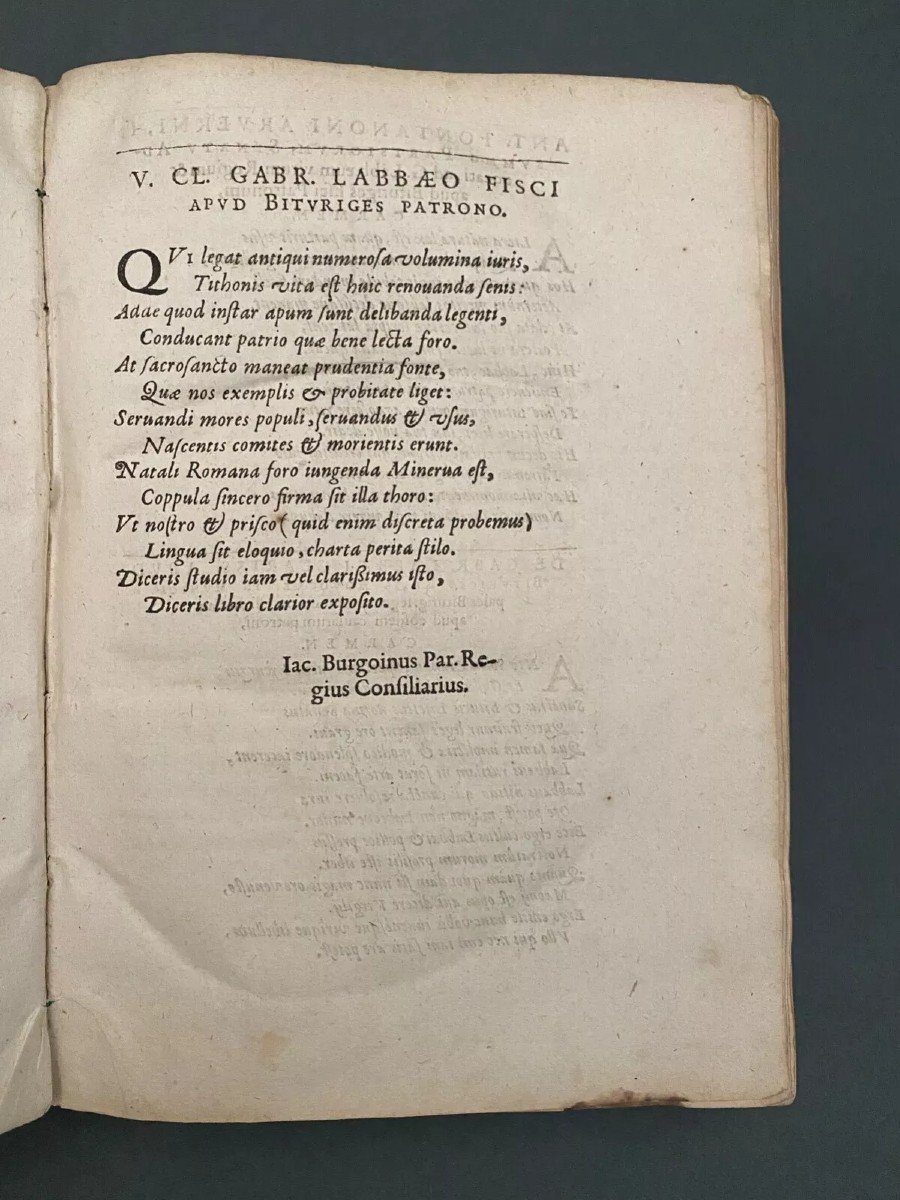 V. CL. GABR. LABBÆO FISCI
APVD BITVRIGES PATRONO.
QVI legat antiqui numerosa volumina iuris,
Tithonis vita est huic renouanda senis:
Adae quod instar apum sunt delibanda legenti,
Conducant patrio quæ bene lecta foro.
At sacrosancto maneat prudentia fonte,
Quæ nos exemplis & probitate liget:
Seruandi mores populi, seruandus & vsus,
Nascentis comites & morientis erunt.
Natali Romana foro iungenda Minerua est,
Coppula sincero firma sit illa thoro:
Vt nostro & prisco (quid enim discreta probemus)
Lingua sit eloquio, charta perita stilo.
Diceris studio iam vel clarißimus isto,
Diceris libro clarior exposito.
Iac. Burgoinus Par. Re-
gius Consiliarius.